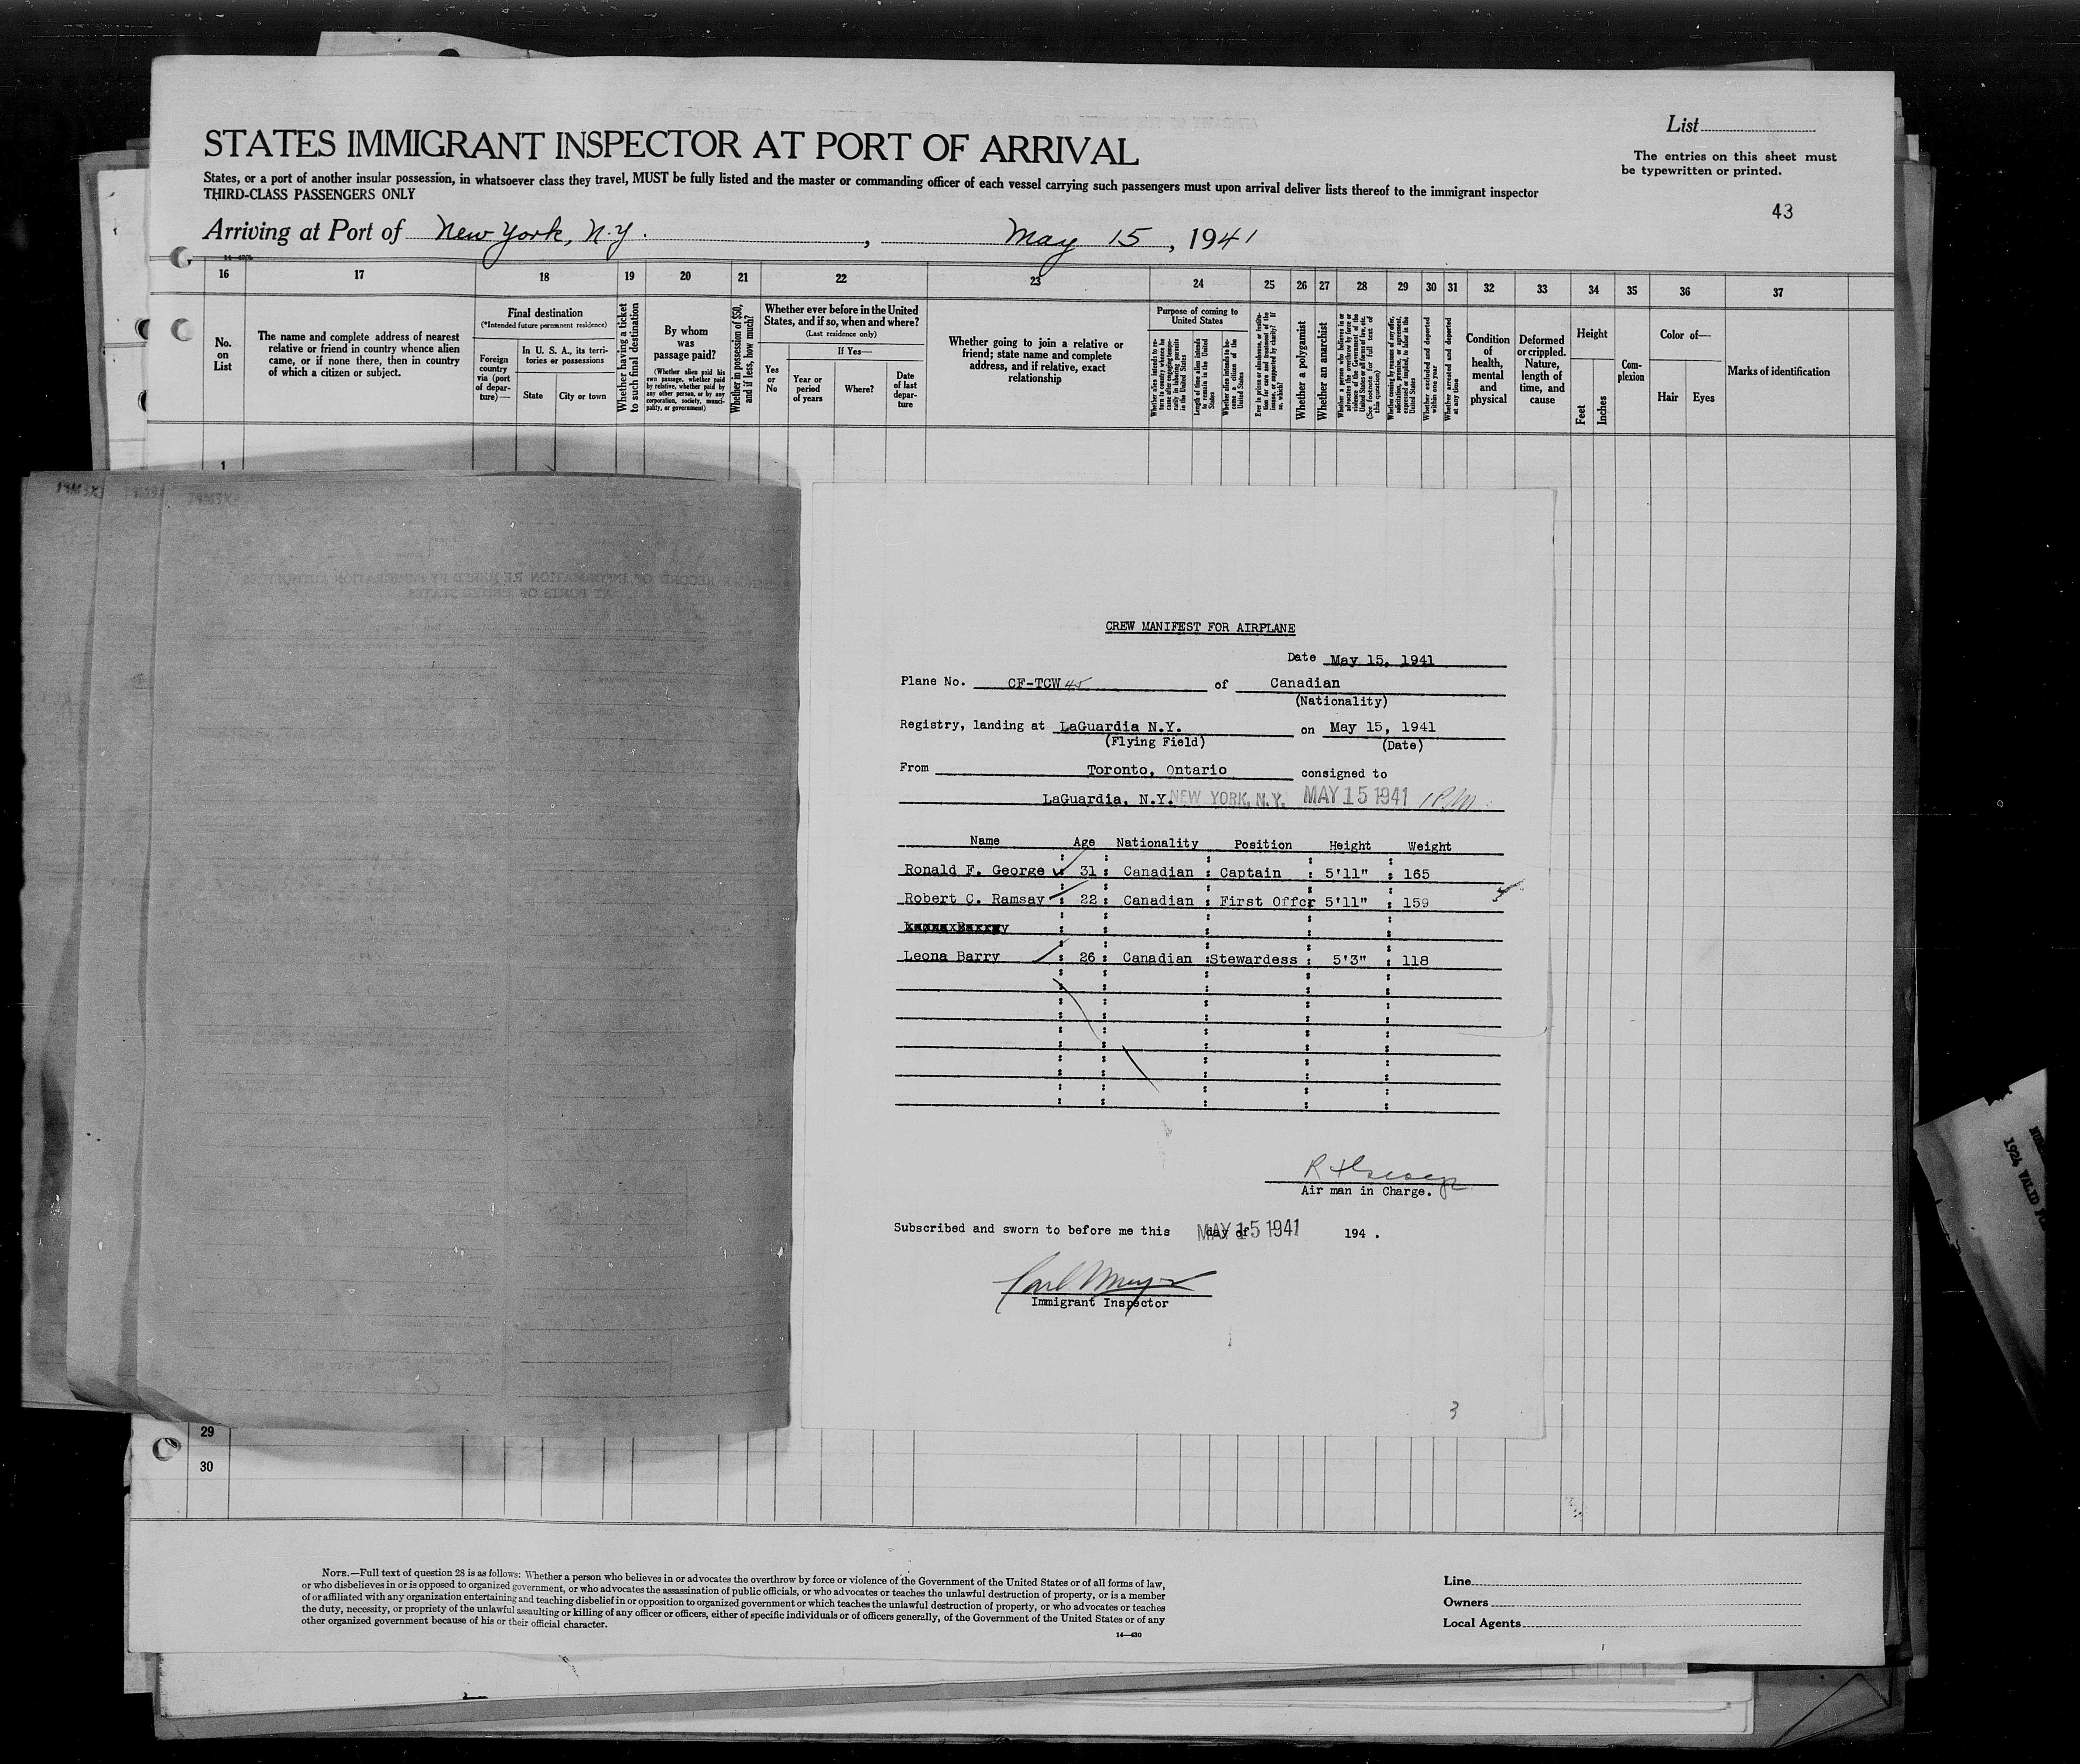 List
The entries on this sheet must
be typewritten or printed.
STATES IMMIGRANT INSPECTOR AT PORT OF ARRIVAL
States, or a port of another insular possession, in whatsoever class they travel, MUST be fully listed and the master or commanding officer of each vessel carrying such passengers must upon arrival deliver lists thereof to the immigrant inspector
THIRD-CLASS PASSENGERS ONLY
43
Arriving at Port of New York, N.Y. , May 15, 1941
16 17 18 19 20 21 22 23 24 25 26 27 28 29 30 31 32 33 34 35 36 37
No.
on
List
The name and complete address of nearest
relative or friend in country whence alien
came, or if none there, then in country
of which a citizen or subject.
Final destination
(*Intended future permanent residence)
Foreign
country
via (port
of depar-
ture)—
In U. S. A., its terri-
tories or possessions
State
City or town
Whether having a ticket
to such final destination
By whom
was
passage paid?
(Whether alien paid his
own passage, whether paid
by relative, whether paid by
any other person, or by any
corporation, society, munici-
pality, or government)
Whether in possession of $50,
and if less, how much?
Whether ever before in the United
States, and if so, when and where?
(Last residence only)
Yes
or
No
If Yes—
Year or
period
of years
Where?
Date
of last
depar-
ture
Whether going to join a relative or
friend; state name and complete
address, and if relative, exact
relationship
Purpose of coming to
United States
Whether a polygamist
Whether an anarchist
Whether excluded and deported
within one year
Whether arrested and deported
at any time
Condition
of
health,
mental
and
physical
Deformed
or crippled.
Nature,
length of
time, and
cause
Height
Feet
Inches
Com-
plexion
Color of—
Hair
Eyes
Marks of identification
1
CREW MANIFEST FOR AIRPLANE
Date May 15, 1941
Plane No. CF-TCW 45 of Canadian
(Nationality)
Registry, landing at LaGuardia N.Y. on May 15, 1941
(Flying Field) (Date)
From Toronto, Ontario consigned to
LaGuardia, N.Y. NEW YORK, N.Y. MAY 15 1941 1 PM
Name Age Nationality Position Height Weight
Ronald F. George 31 Canadian Captain 5'11" 165
Robert C. Ramsay 22 Canadian First Offcr 5'11" 159
Leona Barry 26 Canadian Stewardess 5'3" 118
R F George
Air man in Charge.
Subscribed and sworn to before me this day of MAY 15 1941 194 .
Immigrant Inspector
3
29
30
NOTE.—Full text of question 28 is as follows: Whether a person who believes in or advocates the overthrow by force or violence of the Government of the United States or of all forms of law,
or who disbelieves in or is opposed to organized government, or who advocates the assassination of public officials, or who advocates or teaches the unlawful destruction of property, or is a member
of or affiliated with any organization entertaining and teaching disbelief in or opposition to organized government or which teaches the unlawful destruction of property, or who advocates or teaches
the duty, necessity, or propriety of the unlawful assaulting or killing of any officer or officers, either of specific individuals or of officers generally, of the Government of the United States or of any
other organized government because of his or their official character.
14—430
Line
Owners
Local Agents
1924 VALID